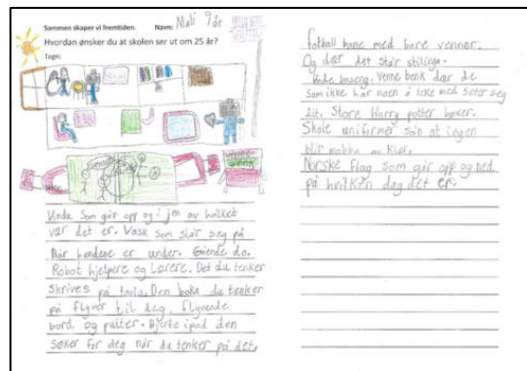 Sammen skaper vi fremtiden. Navn: Mali 9 år
Hvordan ønsker du at skolen ser ut om 25 år?
Tegn:
Vindu som går opp og i jen av hvilket
vær det er. Vask som slår seg på
Når hendene er under. Gående do.
Robot hjelpere og Lærere. Det du tenker
skrives på tavla. Den boka du tenker
på flyver til deg. flyvende
bord og pulter. Hjerte ipad den
søker for deg når du tenker på det.
fotball bane med bare venner.
Og der det står stilinga.
Inde baseng. Venne benk der de
som ikke har noen å leke med seter seg
dit. Store Harry potter bøker.
Skole uniformer sån at ingen
blir mobba av klær.
Norske flag som går opp og ned
på hvilken dag det er.